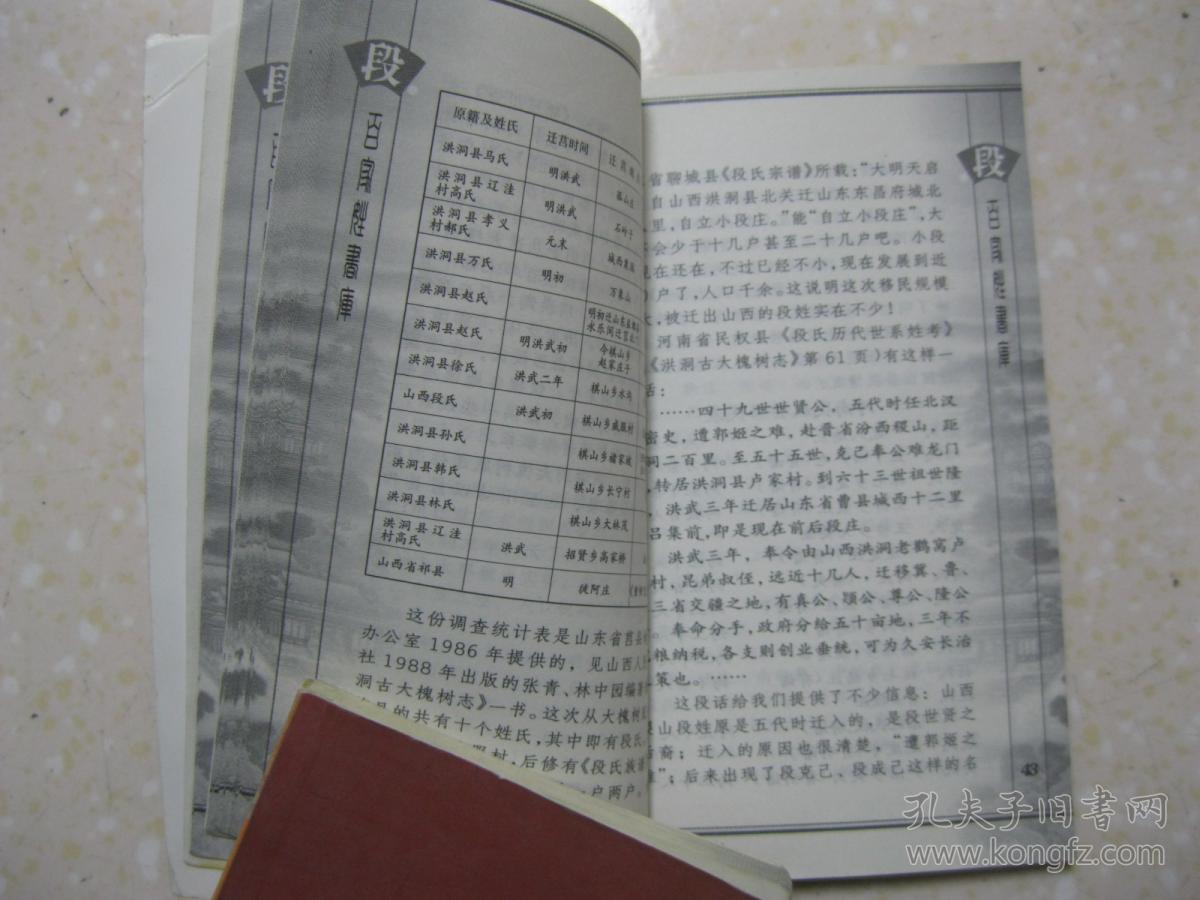 段
百家姓書庫
原籍及姓氏 迁莒时间 迁莒
洪洞县马氏 明洪武
洪洞县辽洼村高氏 明洪武 石岭子
洪洞县孝义村郝氏 元末
洪洞县万氏 明初
洪洞县赵氏
洪洞县赵氏 明洪武初 令棋山乡赵家庄子
洪洞县徐氏 洪武二年 棋山乡水沟
山西段氏 洪武初 棋山乡威服村
洪洞县孙氏 棋山乡褚家坡
洪洞县韩氏 棋山乡长宁村
洪洞县林氏 棋山乡大林茂
洪洞县辽洼村高氏 洪武 招贤乡高家桥
山西省祁县 明 徒阿庄
这份调查统计表是山东省莒县
办公室1986年提供的，见山西人
社1988年出版的张青、林中园编
洞古大槐树志》一书。这次从大槐树
的共有十个姓氏，其中即有段氏
村，后修有《段氏族谱
户两户。
段
百家姓書庫
省聊城县《段氏宗谱》所载：“大明天启
自山西洪洞县北关迁山东东昌府城北
里，自立小段庄。”能“自立小段庄”，大
会少于十几户甚至二十几户吧。小段
在还在，不过已经不小，现在发展到近
户了，人口千余。这说明这次移民规模
大，被迁出山西的段姓实在不少！
河南省民权县《段氏历代世系姓考》
《洪洞古大槐树志》第61页）有这样一
话：
……四十九世世贤公，五代时任北汉
密史，遭郭姬之难，赴晋省汾西稷山，距
间二百里。至五十五世，克己奉公难龙门
，转居洪洞县卢家村。到六十三世祖世隆
，洪武三年迁居山东省曹县城西十二里
吕集前，即是现在前后段庄。
洪武三年，奉令由山西洪洞老鹳窝卢
村，昆弟叔侄，远近十几人，迁移冀、鲁、
三省交疆之地，有真公、颎公、尊公、隆公
。奉命分手，政府分给五十亩地，三年不
粮纳税，各支则创业垂统，可为久安长治
策也。……
这段话给我们提供了不少信息：山西
山段姓原是五代时迁入的，是段世贤之
后裔；迁入的原因也很清楚，“遭郭姬之
难”；后来出现了段克己、段成己这样的名
43
孔夫子旧书网
www.kongfz.com